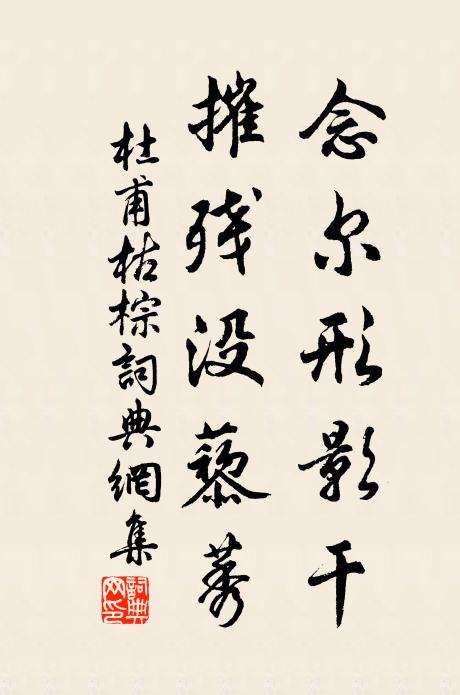 念尔形影干
摧残没藜莠
杜甫枯棕詞典網集
詞典
网印